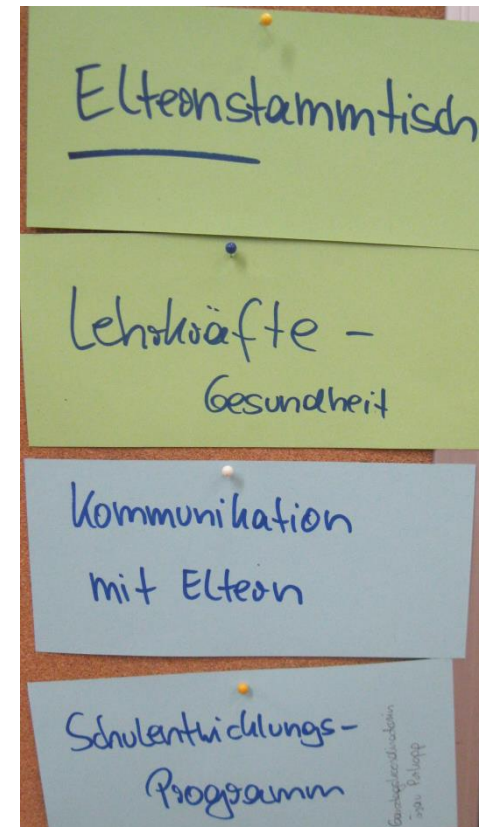 Elternstammtisch
Lehrkräfte -
Gesundheit
Kommunikation
mit Eltern
Schulentwicklungs-
Programm